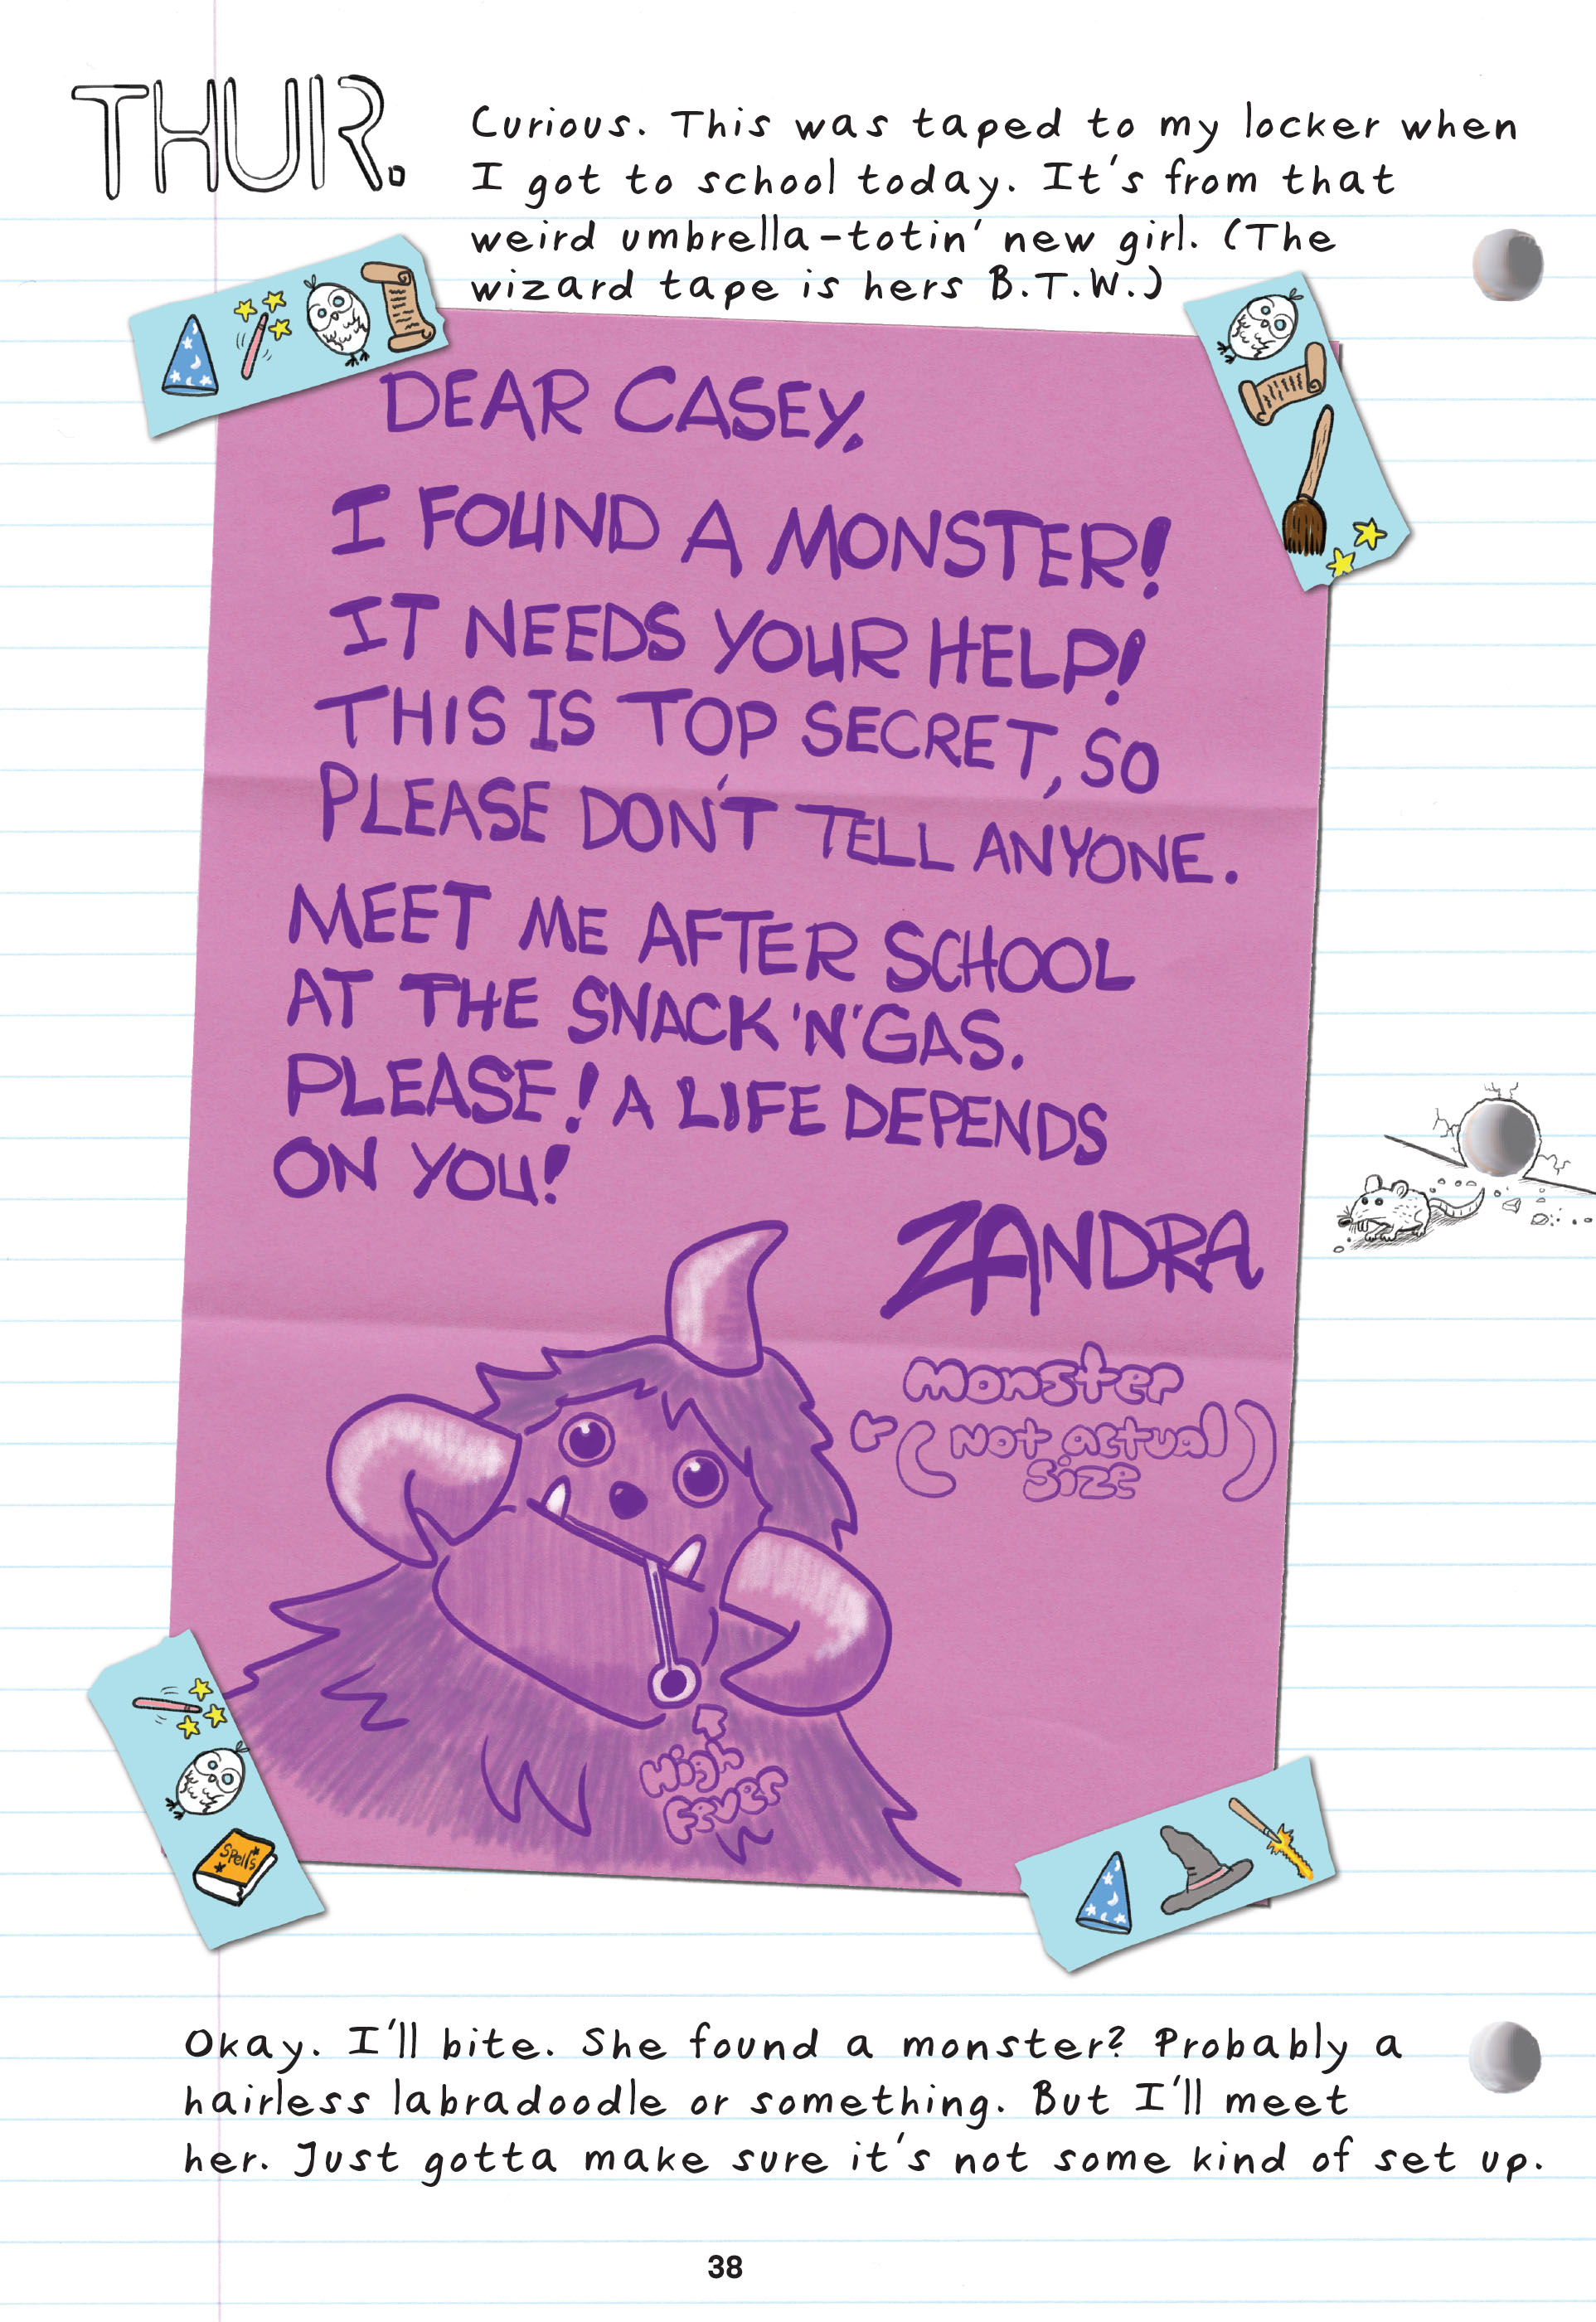 THUR.
Curious. This was taped to my locker when
I got to school today. It's from that
weird umbrella-totin' new girl. (The
wizard tape is hers B.T.W.)
DEAR CASEY,
I FOUND A MONSTER!
IT NEEDS YOUR HELP!
THIS IS TOP SECRET, SO
PLEASE DON'T TELL ANYONE.
MEET ME AFTER SCHOOL
AT THE SNACK 'N' GAS.
PLEASE! A LIFE DEPENDS
ON YOU!
ZANDRA
monster
(Not actual
size)
High
Fever
Spells
Okay. I'll bite. She found a monster? Probably a
hairless labradoodle or something. But I'll meet
her. Just gotta make sure it's not some kind of set up.
38